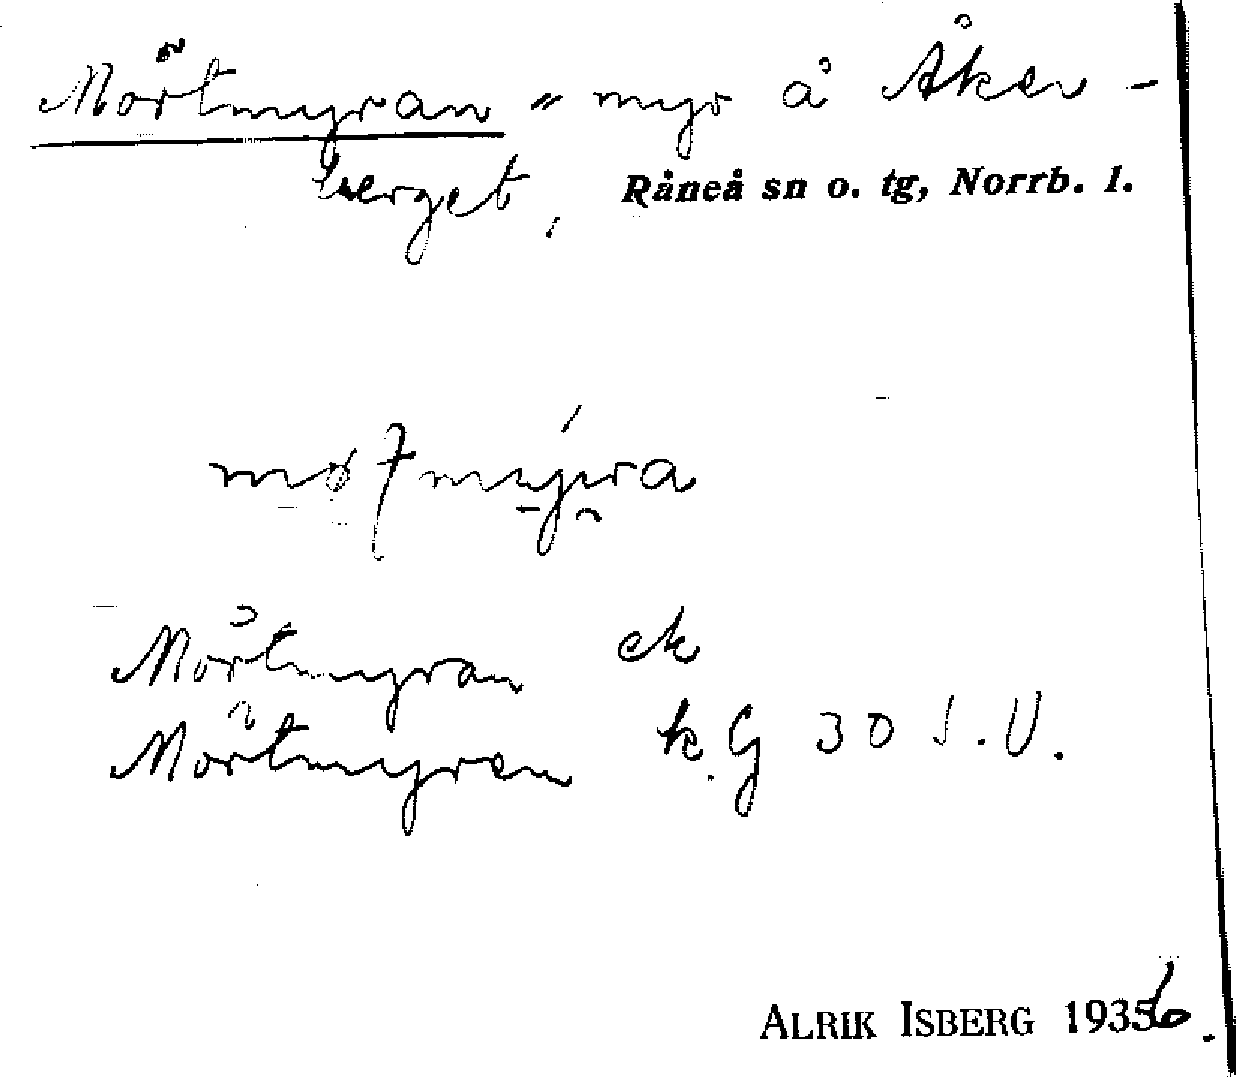 Mörtmyran = myr å Åker-
berget, Råneå sn o. tg, Norrb. l.
Mörtmyran ek
Mörtmyran k. G 30 S.V.
ALRIK ISBERG 1936